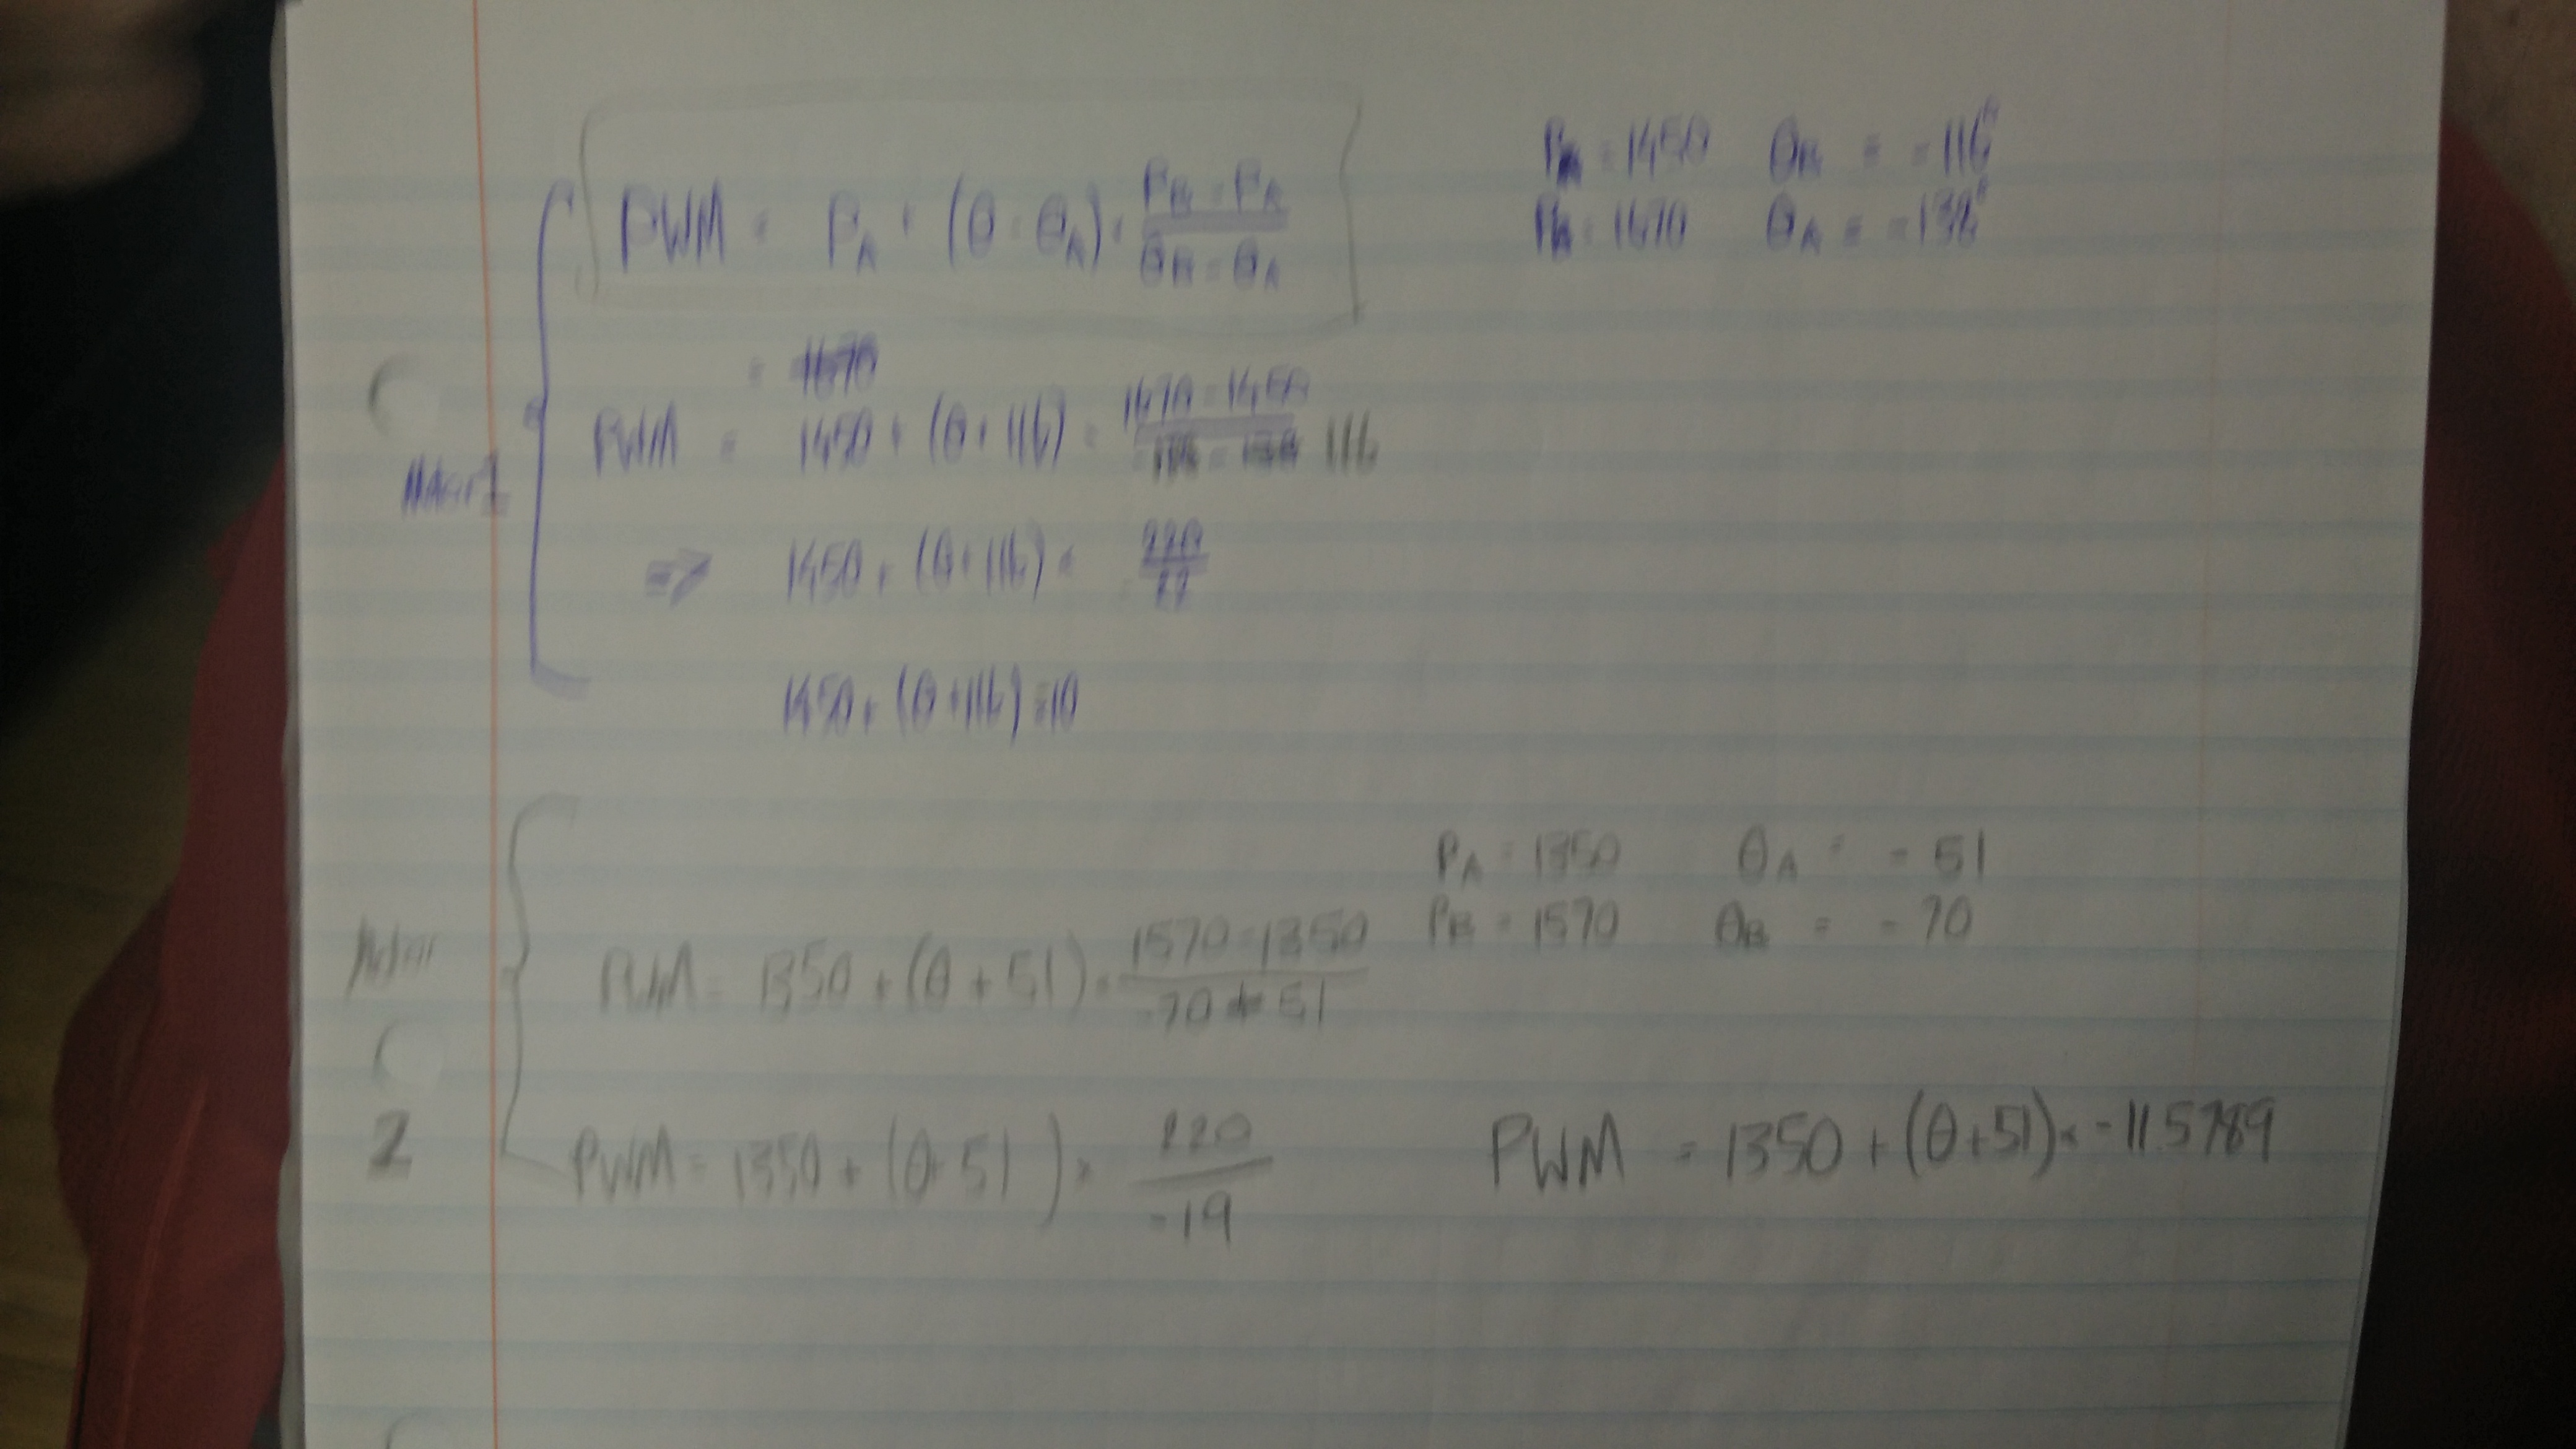 PWM = P_A + (θ - θ_A) · (P_B - P_A)/(θ_B - θ_A)
P = 1450 θ_B = -116°
P = 1670 θ_A = -138°
= 1670
PWM = 1450 + (θ + 116) · (1670 - 1450)/ 116
⇒ 1450 + (θ + 116) · 220/22
1450 + (θ + 116) · 10
P_A = 1350 θ_A = - 51
P_B = 1570 θ_B = - 70
PWM = 1350 + (θ + 51) · (1570 - 1350)/(-70 + 51)
2
PWM = 1350 + (θ + 51) × 220/-19
PWM = 1350 + (θ+51) × -11.5789